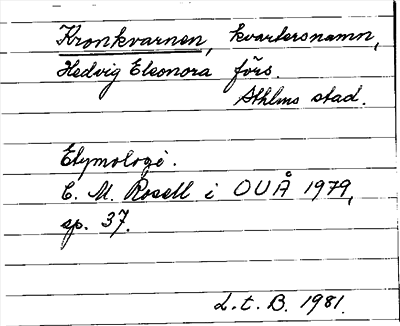 Kronkvarnen, kvartersnamn,
Hedvig Eleonora förs.
Sthlms stad.
Etymologi.
C. M. Rosell i OUÅ 1979,
sp. 37.
L.t. B. 1981.